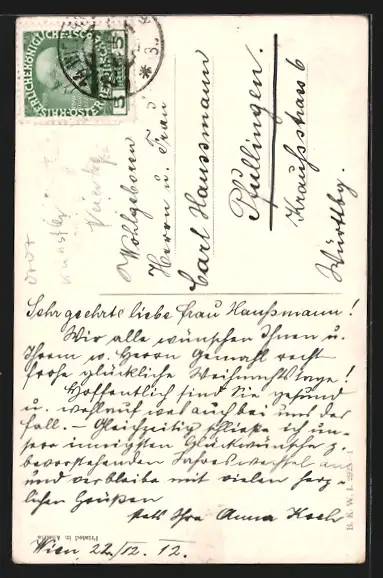 Wohlgeboren
Herrn u. Frau
Carl Haussmann
Pfullingen.
Krausstrass 6
Württbg.
Sehr geehrte liebe Frau Haußmann!
Wir alle wünschen Ihnen u.
Ihrem w. Herrn Gemahl recht
frohe glückliche Weihnachtstage!
Hoffentlich sind Sie gesund
u. wohlauf was auch bei uns der
Fall. – Gleichzeitig schließe ich un-
sere innigsten Glückwünsche z.
bevorstehenden Jahreswechsel an
und verbleibe mit vielen herz-
lichen Grüßen
stets Ihre Anna Koch
Wien, 22/12. 12.
Printed in Austria
B. K. W. I.
5 5